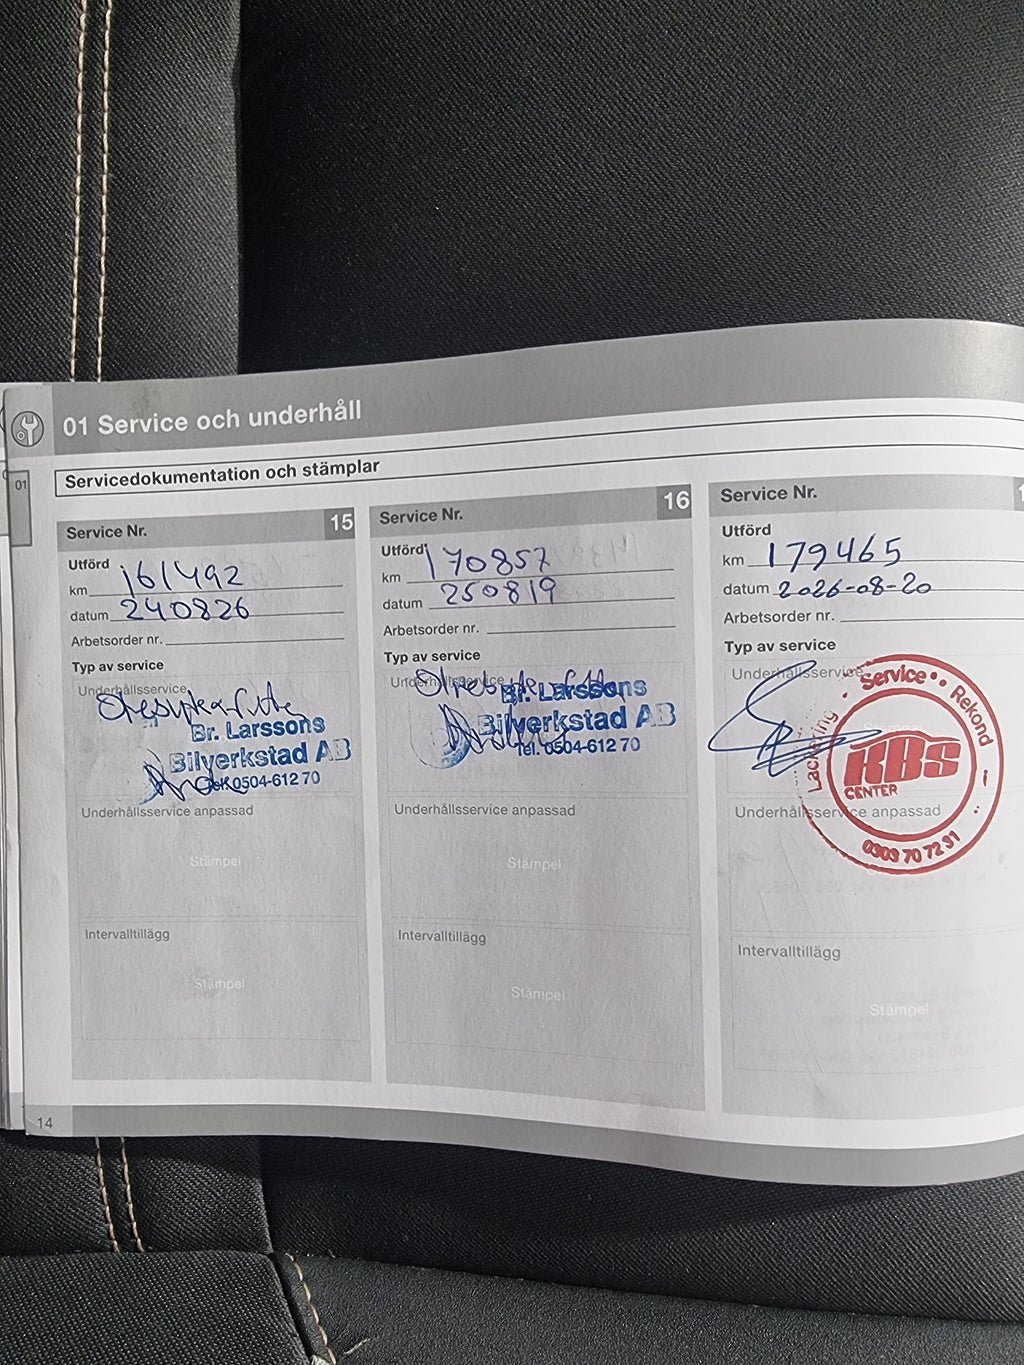 01 Service och underhåll
01
Servicedokumentation och stämplar
Service Nr. 15
Utförd
km 161492
datum 240826
Arbetsorder nr.
Typ av service
Underhållsservice
Br. Larssons
Bilverkstad AB
0504-612 70
Underhållsservice anpassad
Stämpel
Intervalltillägg
Stämpel
Service Nr. 16
Utförd
km 170857
datum 250819
Arbetsorder nr.
Typ av service
Underhållsservice
Br. Larssons
Bilverkstad AB
Tel. 0504-612 70
Underhållsservice anpassad
Stämpel
Intervalltillägg
Stämpel
Service Nr. 1
Utförd
km 179465
datum 2026-08-20
Arbetsorder nr.
Typ av service
Underhållsservice
Stämpel
Lackering • Service • Rekond
KBS
CENTER
0303 70 72 31
Underhållsservice anpassad
Intervalltillägg
Stämpel
14